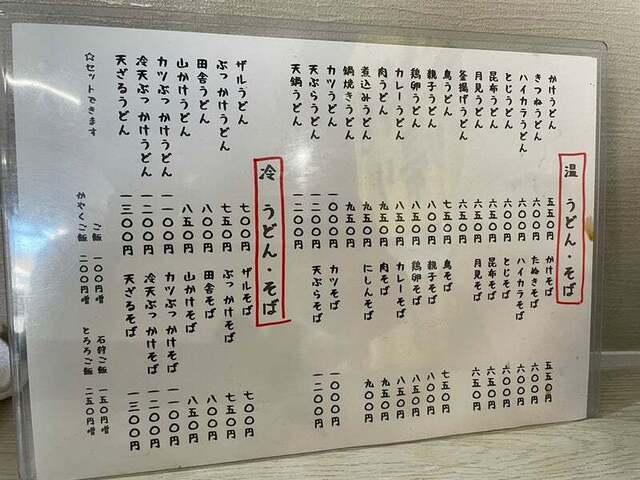 温 うどん・そば
かけうどん 五五〇円 かけそば 五五〇円
きつねうどん 六〇〇円 たぬきそば 六〇〇円
ハイカラうどん 六〇〇円 ハイカラそば 六〇〇円
とじうどん 六〇〇円 とじそば 六〇〇円
昆布うどん 六五〇円 昆布そば 六五〇円
月見うどん 六五〇円 月見そば 六五〇円
釜揚げうどん 六五〇円
鳥うどん 七五〇円 鳥そば 七五〇円
親子うどん 八〇〇円 親子そば 八〇〇円
鶏卵うどん 八五〇円 鶏卵そば 八五〇円
カレーうどん 八五〇円 カレーそば 八五〇円
肉うどん 九五〇円 肉そば 九五〇円
煮込みうどん 九五〇円 にしんそば 九〇〇円
鍋焼きうどん 九五〇円
カツうどん 一〇〇〇円 カツそば 一〇〇〇円
天ぷらうどん 一二〇〇円 天ぷらそば 一二〇〇円
天鍋うどん 一二〇〇円
冷 うどん・そば
ザルうどん 七〇〇円 ザルそば 七〇〇円
ぶっかけうどん 七五〇円 ぶっかけそば 七五〇円
田舎うどん 八〇〇円 田舎そば 八〇〇円
山かけうどん 八五〇円 山かけそば 八五〇円
カツぶっかけうどん 一一〇〇円 カツぶっかけそば 一一〇〇円
冷天ぶっかけうどん 一二〇〇円 冷天ぶっかけそば 一二〇〇円
天ざるうどん 一三〇〇円 天ざるそば 一三〇〇円
☆セットできます
ご飯 一〇〇円増 石狩ご飯 一五〇円増
かやくご飯 二〇〇円増 とろろご飯 二五〇円増